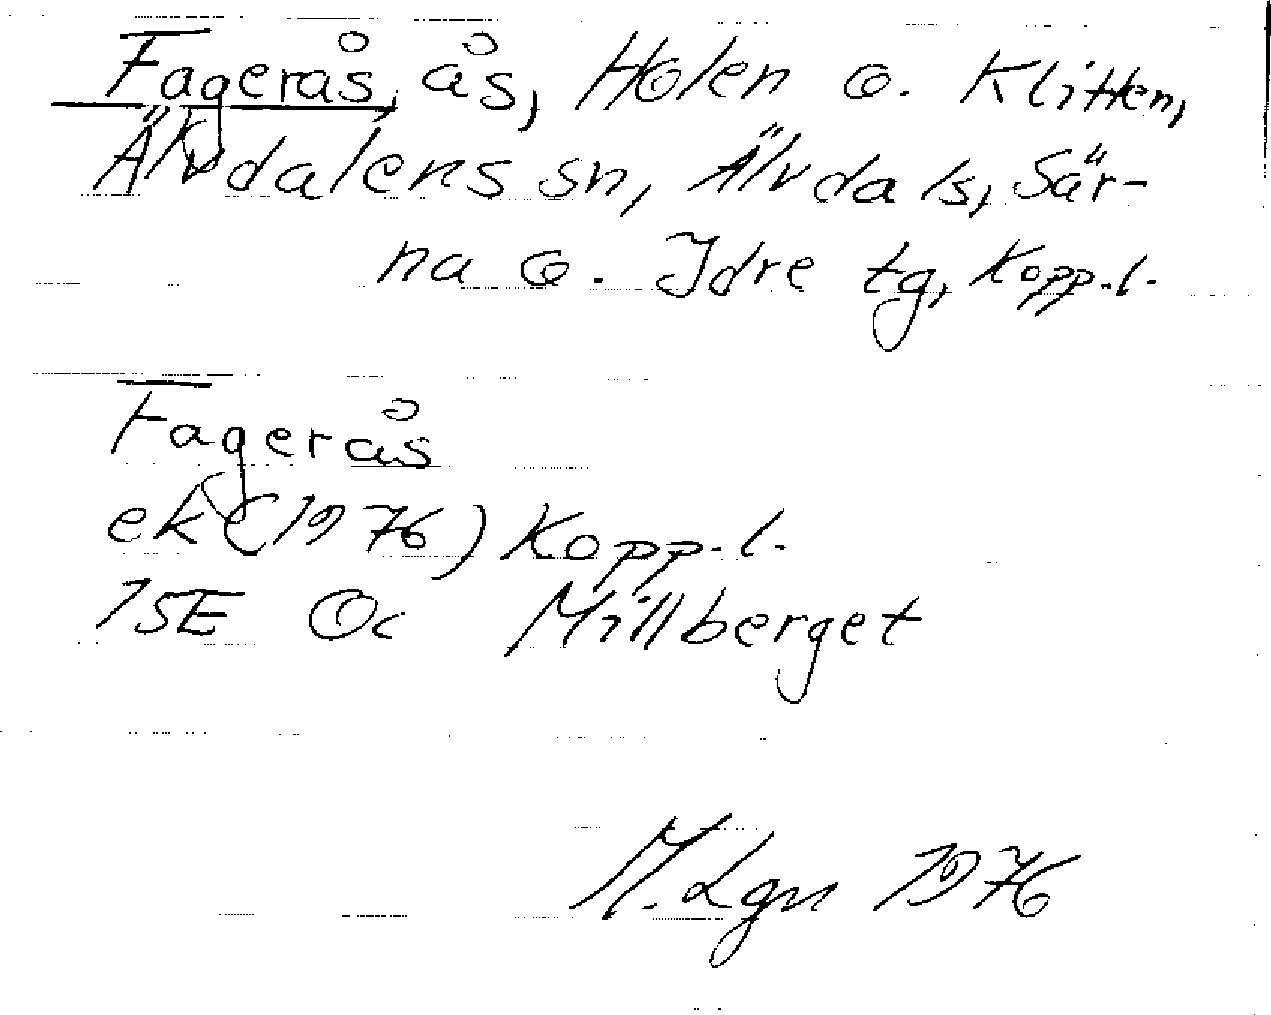 Fagerås, ås, Holen o. Klitten,
Älvdalens sn, Älvdals, Sär-
na o. Idre tg, Kopp.l.
Fagerås
ek (1976) Kopp.l.
15E Oc Millberget
M. Lgn 1976